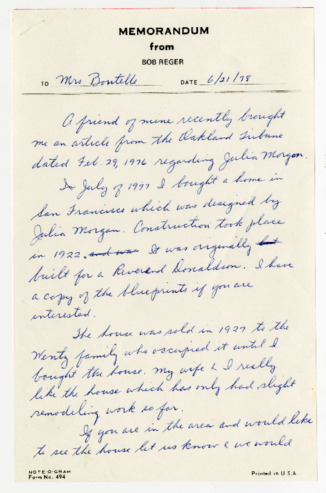 MEMORANDUM
from
BOB REGER
TO Mrs. Boutelle DATE 6/21/78
A friend of mine recently brought
me an article from the Oakland Tribune
dated Feb. 29, 1976 regarding Julia Morgan.
In July of 1977 I bought a home in
San Francisco which was designed by
Julia Morgan. Construction took place
in 1922. and was It was originally but
built for a Reverend Donaldson. I have
a copy of the blueprints if you are
interested.
The house was sold in 1927 to the
Wenty family who occupied it until I
bought the house. My wife & I really
like the house which has only had slight
remodeling work so far.
If you are in the area and would like
to see the house let us know & we would
NOTE-O-GRAM
Form No. 494
Printed in U.S.A.